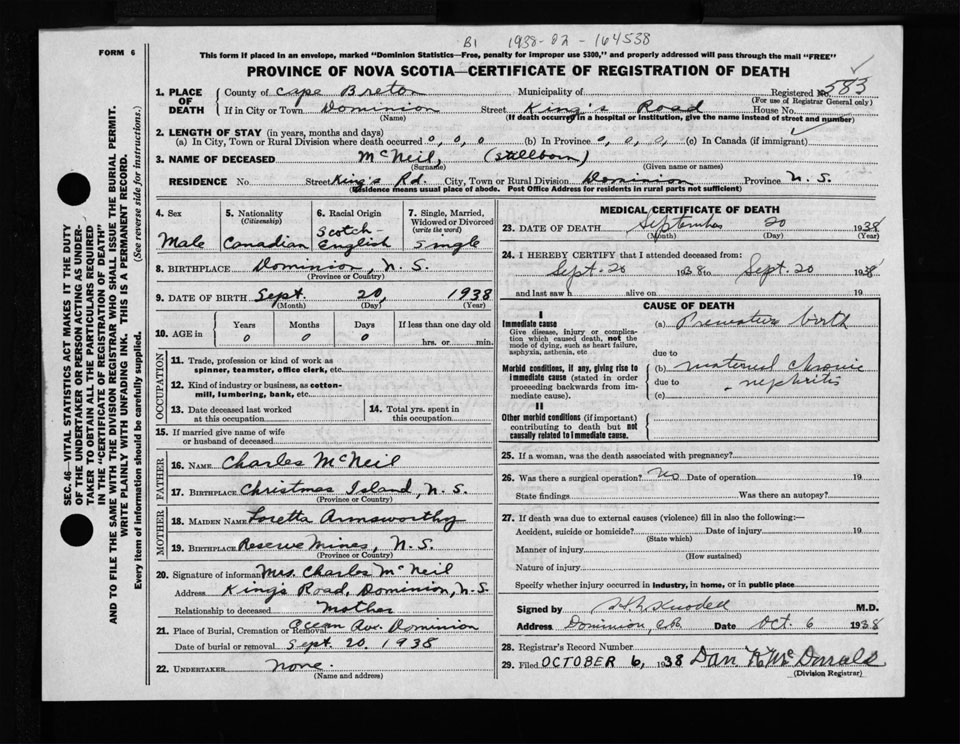 B1 1938-02-164538
FORM 6
This form if placed in an envelope, marked "Dominion Statistics—Free, penalty for improper use $300," and properly addressed will pass through the mail "FREE"
PROVINCE OF NOVA SCOTIA—CERTIFICATE OF REGISTRATION OF DEATH
1. PLACE OF DEATH County of Cape Breton Municipality of Registered No. 583
(For use of Registrar General only)
If in City or Town Dominion Street King's Road House No.
(Name) (If death occurred in a hospital or institution, give the name instead of street and number)
2. LENGTH OF STAY (in years, months and days)
(a) In City, Town or Rural Division where death occurred 0, 0, 0 (b) In Province 0, 0, 0, (c) In Canada (if immigrant)
3. NAME OF DECEASED McNeil, (stillborn)
(Surname) (Given name or names)
RESIDENCE No. Street King's Rd. City, Town or Rural Division Dominion Province N. S.
(Residence means usual place of abode. Post Office Address for residents in rural parts not sufficient)
SEC. 46—VITAL STATISTICS ACT MAKES IT THE DUTY
OF THE UNDERTAKER OR PERSON ACTING AS UNDER-
TAKER TO OBTAIN ALL THE PARTICULARS REQUIRED
IN THE "CERTIFICATE OF REGISTRATION OF DEATH"
AND TO FILE THE SAME WITH THE DIVISION REGISTRAR WHO SHALL ISSUE THE BURIAL PERMIT.
WRITE PLAINLY WITH UNFADING INK. THIS IS A PERMANENT RECORD.
Every item of information should be carefully supplied. (See reverse side for instructions.)
4. Sex
Male
5. Nationality
(Citizenship)
Canadian
6. Racial Origin
Scotch-
English
7. Single, Married,
Widowed or Divorced
(write the word)
Single
8. BIRTHPLACE Dominion, N. S.
(Province or Country)
9. DATE OF BIRTH Sept. 20, 1938
(Month) (Day) (Year)
10. AGE in Years Months Days If less than one day old
0 0 0 hrs. or min.
OCCUPATION
11. Trade, profession or kind of work as
spinner, teamster, office clerk, etc.
12. Kind of industry or business, as cotton-
mill, lumbering, bank, etc.
13. Date deceased last worked
at this occupation
14. Total yrs. spent in
this occupation
15. If married give name of wife
or husband of deceased
FATHER
16. NAME Charles McNeil
17. BIRTHPLACE Christmas Island, N. S.
(Province or Country)
MOTHER
18. MAIDEN NAME Loretta Armsworthy
19. BIRTHPLACE Reserve Mines, N. S.
(Province or Country)
20. Signature of informant Mrs. Charles McNeil
Address King's Road, Dominion, N. S.
Relationship to deceased Mother
21. Place of Burial, Cremation or Removal Ocean Ave. Dominion
Date of burial or removal Sept. 20, 1938
22. UNDERTAKER none.
(Name and address)
MEDICAL CERTIFICATE OF DEATH
23. DATE OF DEATH September 20 1938
(Month) (Day) (Year)
24. I HEREBY CERTIFY that I attended deceased from:
Sept. 20 1938 to Sept. 20 1938
and last saw h alive on 19
CAUSE OF DEATH
I
Immediate cause
Give disease, injury or complica-
tion which caused death, not the
mode of dying, such as heart failure,
asphyxia, asthenia, etc.
(a) Premature birth
due to
Morbid conditions, if any, giving rise to
immediate cause (stated in order
proceeding backwards from im-
mediate cause).
(b) maternal chronic
due to nephritis
(c)
II
Other morbid conditions (if important)
contributing to death but not
causally related to immediate cause.
25. If a woman, was the death associated with pregnancy?
26. Was there a surgical operation? No Date of operation 19
State findings Was there an autopsy?
27. If death was due to external causes (violence) fill in also the following:—
Accident, suicide or homicide? Date of injury 19
(State which)
Manner of injury
(How sustained)
Nature of injury
Specify whether injury occurred in industry, in home, or in public place
Signed by M.D.
Address Dominion, C.B. Date Oct. 6 1938
28. Registrar's Record Number
29. Filed OCTOBER 6, 1938 Dan R McDonald
(Division Registrar)